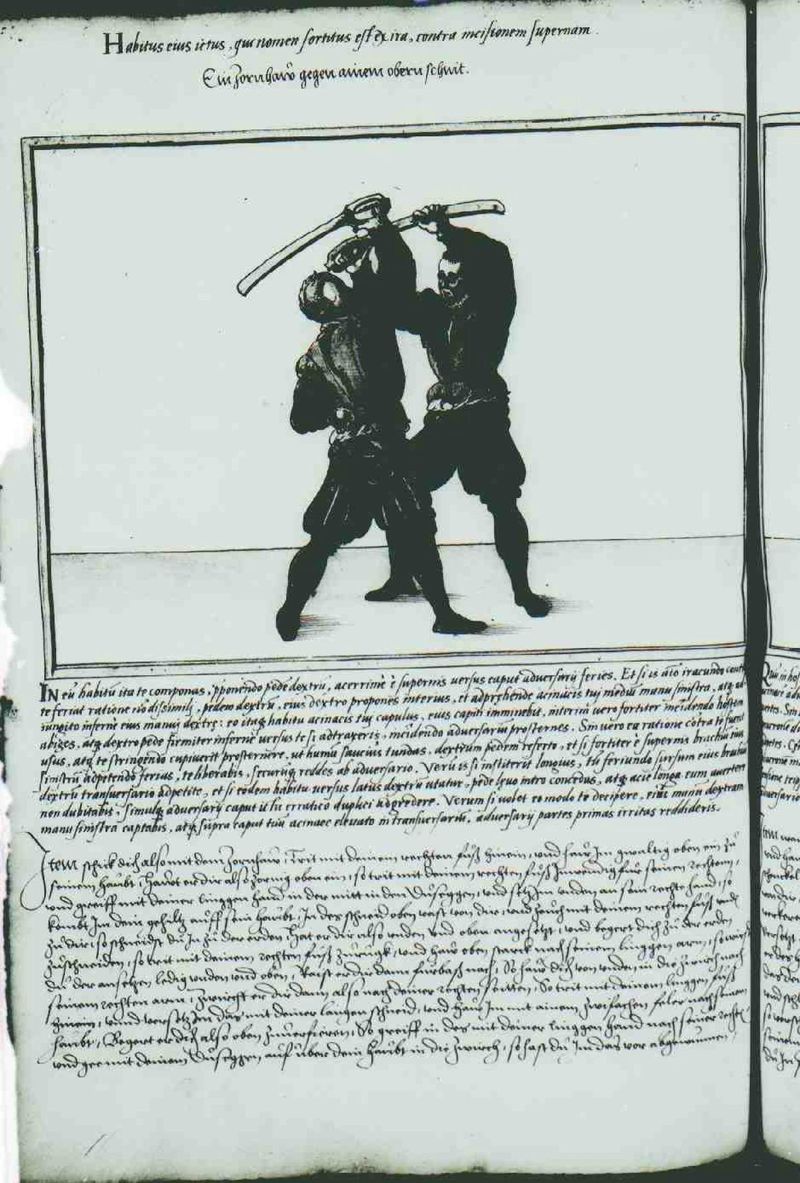 Habitus eius ictus, qui nomen sortitus est ex ira, contra incisionem supernam.
Ein Zornhaw gegen ainem obern schnit.
IN eū habitū ita te componas, pponendo pedē dextrū, acerrime è supernis versus caput adversarij feries. Et si is aīo iracundo contra
te feriat ratione nō dissimili, pedem dextrū, eius dextro propones interius, et adprehende acinacis tuj mediū manu sinistra, atq
iungito infernè eius manui dextrę: eo itaq habitu acinacis tuj capulus, eius capiti imminebit, interim vero fortiter incidendo hostem
abiges, atq dextro pede firmiter infernè versus te si adtraxeris, incidendo adversariū prosternes. Sin vero ea ratione cōtra te fuerit
usus, atq te stringendo cupiuerit prosternere, ut humi saucius tundas, dextrum pedem referto, et si fortiter è supernis brachiū eius
sinistrū adpetendo ferias, te liberabis, securūq reddes ab adversario. Verū is si institerit longius, tu feriundo sursum eius brachiū
dextrū transversario adpetite, et si eodem habitu versus latus dextrū utatur, pede levo intro concedes, atq acie longa eum avertere
non dubitabis, simulq adversarij caput ictu erratico duplici adgredere. Verum si volet eo modo te decipere, eius manū dextram
manu sinistra captabis, atq supra caput tuū acinace elevato in transversariū, adversarij partes primas irritas reddideris.
Item schick dich also mit dem Zornhaw, Trit mit deinem rechten fuß hinein, und haw Im gwaltig oben ein zu
seinem haubt, Hawet er dir also zornig oben ein, so trit mit deinem rechten fuß Inwendig für seinen rechten,
und greiff mit deiner linggen hand in der mitt in den Duseggen, und setz Im unden an sein rechte hand, so
kombt Im dein gehiltz auff sein haubt, In des schneid oben vast von dir, und zeuch mit deinem rechten fuß
zu dir, so schneidst du In zu der erden Hat er dir also unden und oben angesetzt, und begert dich zu der erden
zuschneiden, so trit mit deinem rechten fuß zurugk, und haw oben starck nach seinem linggen arm, so wirst
du der ansetzen ledig unden und oben, Raist er dir dann fürbaß nach, So haw dich von unden in die Zwirch nach
seinem rechten arm, Zwircht er dir dann also nach deiner rechten seitten, So trit mit deinem linggen fuß
hinein, unnd versetz In das mit deiner langen schneid, und haw Im mit ainem zwifachen feler nach seinem
haubt, Begert er dich also oben zuverfieren, So greiff in des mit deiner linggen hand nach seiner rechten
und gee mit deinem Duseggen auf uber dem haubt in die Zwirch, so hast du Im das vor abgewunnen.